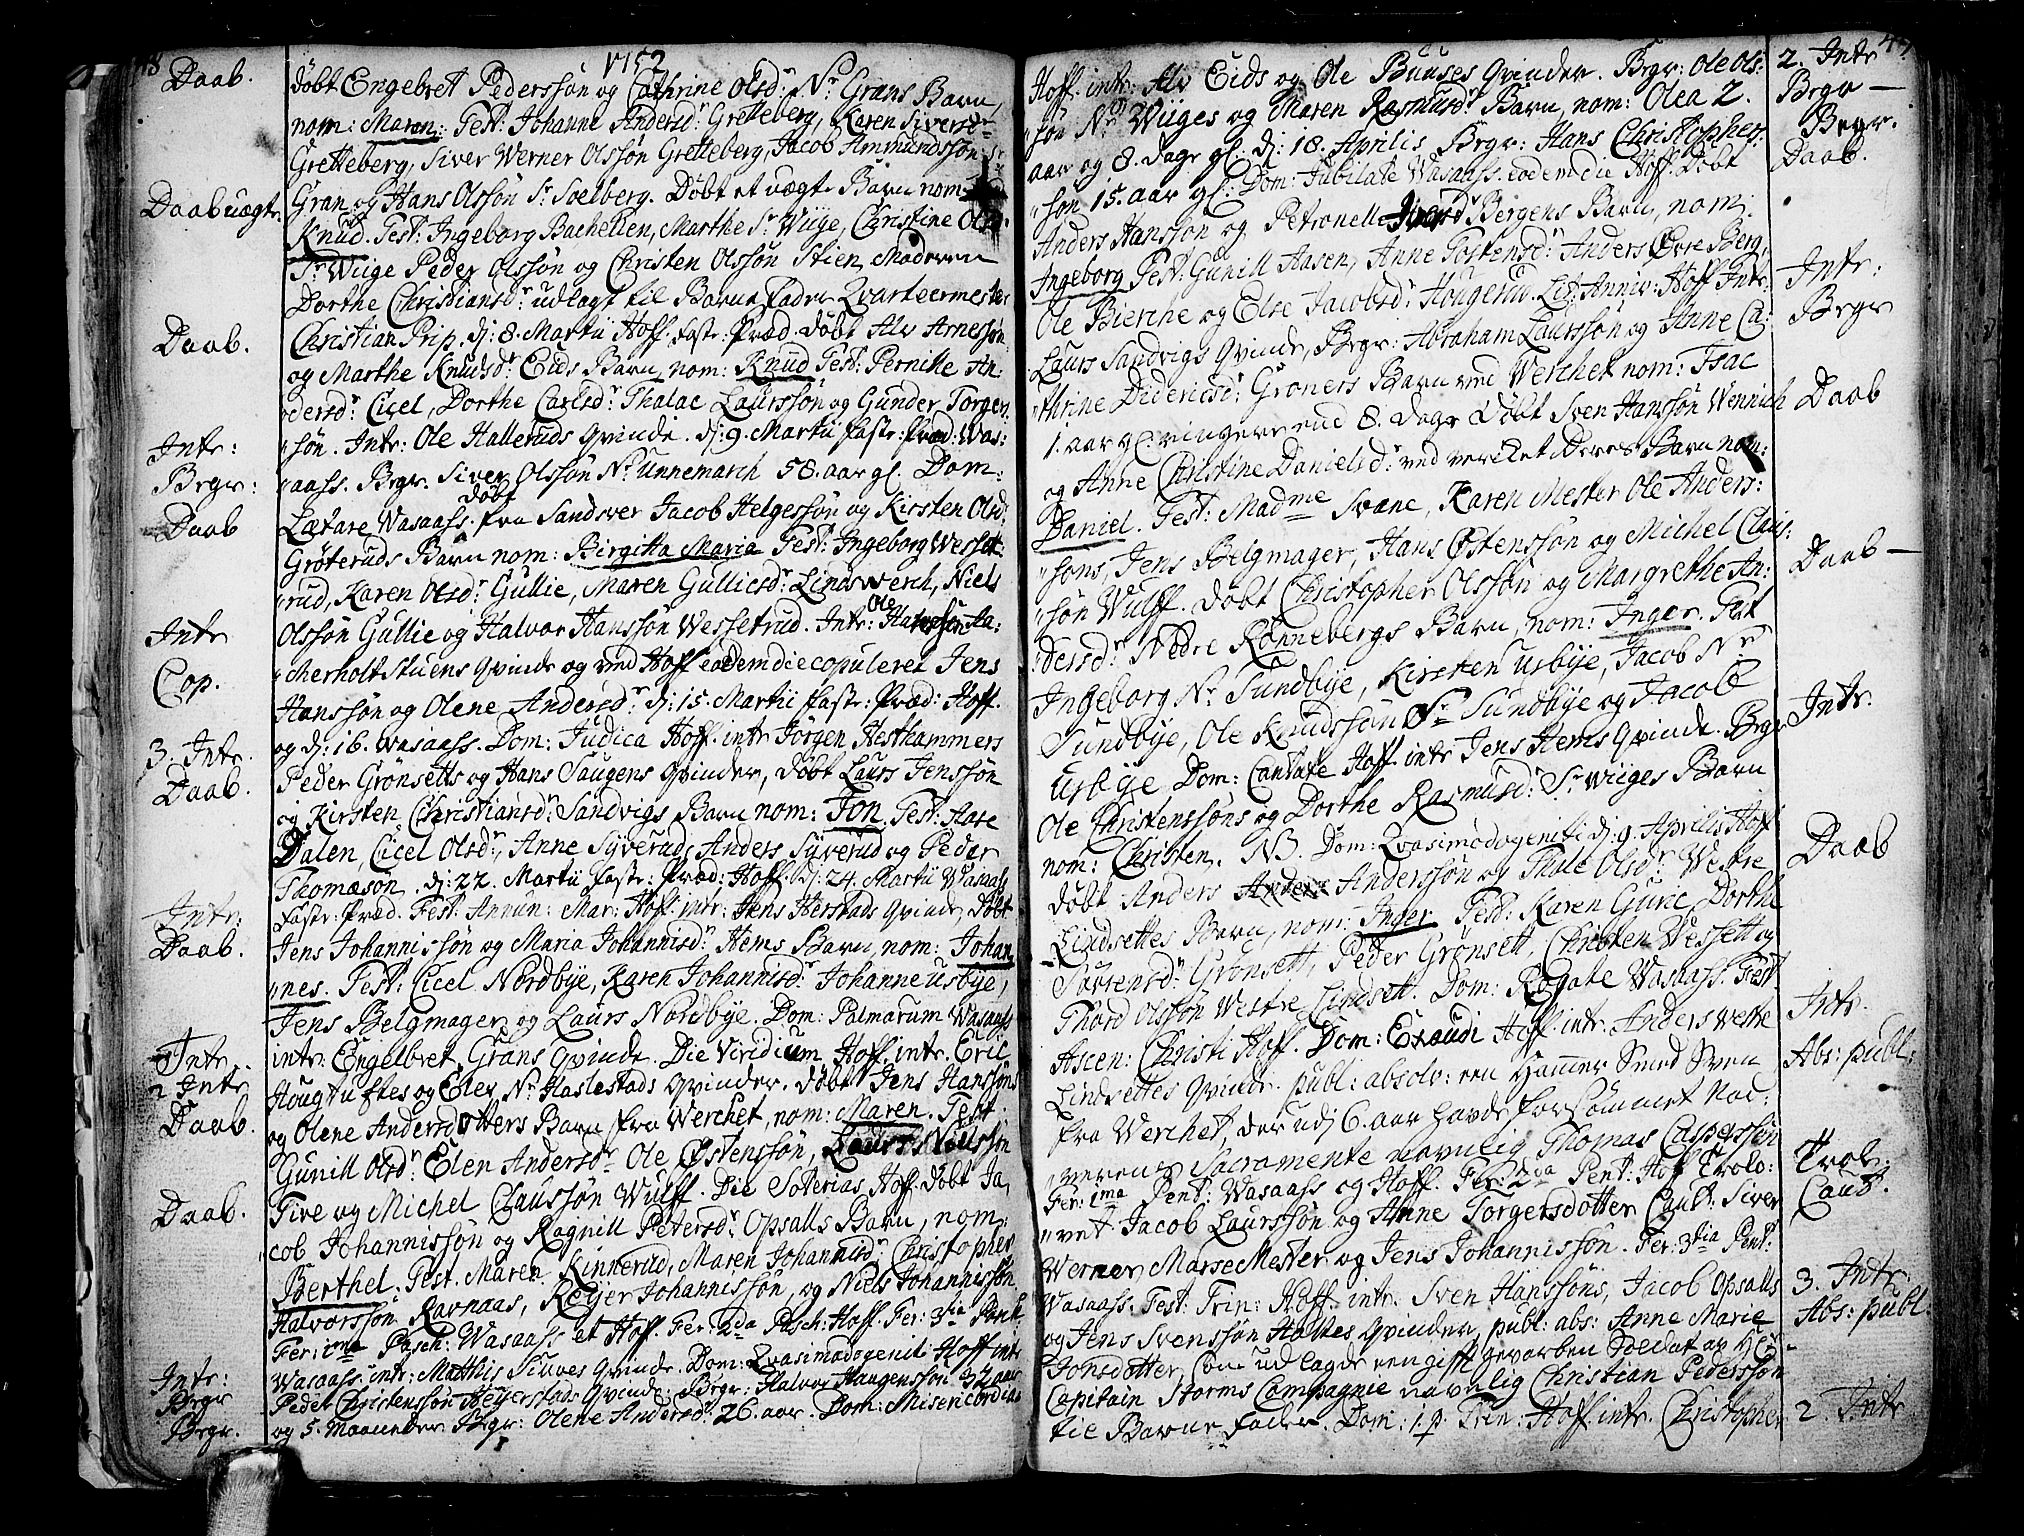 1752
Daab.
døbt Engebret Pederssøn og Cathrine Olsdr Nr Grans Barn,
nom: Maren. Test: Johanne Andersdr Gretteberg, Karen Siversdr
Gretteberg, Siver Werner Olssøn Gretteberg, Jacob Ammundssøn
Daab uægte
Gran og Hans Olssøn Sr Soelberg. Døbt et uægte Barn nom:
Knud. Test: Ingeborg Bachelien, Marthe Sr Wiige, Christine Olsdr
Sr Wiige Peder Olssøn og Christen Olssøn Stien, Moderen
Dorthe Christiansdr udlagt til Barne Fader Qvarteermester
Daab.
Christian Prip. dj: 8. Martii Hoff. faste: Præd. døbt Alv Arnessøn
og Marthe Knudsdr Eids Barn, nom: Knud Test: Pernille An-
dersdr Cicel, Dorthe Carlsdr Thalac Laurssøn og Gunder Torger-
Intr:
søn. Intr: Ole Halleruds Qvinde. dj: 9. Martii faste: Præd: Was:
Begr:
aass. Begr. Siver Olssøn Nr Unnemarch 58. aar gl. Dom:
Daab
Lætare Wasaass. døbt fra Sandsver Jacob Helgessøn og Kirsten Olsdr
Grøteruds Barn nom: Birgitta Maria Test: Ingeborg Wesset-
rud, Karen Olsdr Gullie, Maren Gulliesdr Lindswerch, Niels
Intr
Olssøn Gullie og Halvor Hanssøn Wessetrud. Intr: Ole Ha-
Cop.
merholt Stuens Qvinde og ved Hoff eodem die copuleret Jens
Hanssøn og Olene Andersdr dj: 15. Martii faste: Præd: Hoff.
3. Intr.
og dj: 16. Wasaass. Dom: Judica Hoff. intr Jørgen Hesthammers
Daab.
Peder Grønsetts og Hans Saugens Qvinder, døbt Laurs Jenssøn
og Kirsten Christiansdr Sandvigs Barn nom: Jon. Test: Aase
Dalen, Cicel Olsdr, Anne Syverud, Anders Syverud og Peder
Thomæsøn. dj: 22. Martii faste: Præd: Hoff. dj: 24. Martii Wasaass
Intr:
faste: Præd. Fest: Annun: Mar: Hoff. intr: Jens Herstads Qvinde, døbt
Daab.
Jens Johannissøn og Maria Johannisdr Hems Barn, nom: Johan
nes. Test: Cicel Nordbye, Karen Johannisdr Johanne Usbye,
Jens Belgmager og Laurs Nordbye. Dom: Palmarum Wasaass
Intr.
intr: Engelbret Grans Qvinde. Die Viridium Hoff. intr. Eric
2 Intr
Hougtuftes og Elev Nr Haslestads Qvinder. døbt Jens Hanssøns
Daab.
og Olene Andersdotters Barn fra Werchet, nom: Maren. Test:
Gunill Olsdr Elen Andersdr Ole Østenssøn, Laurs Nielssøn
Five og Michel Claussøn Wulff. Die Soterias Hoff. døbt Ja-
Daab.
cob Johannissøn og Ragnill Petersdr Opsalls Barn, nom:
Berthel. Test. Maren Kinnerud, Maren Johannisdr Christopher
Halvorssøn Ravnaas, Reyer Johannissøn, og Niels Johannissøn.
Fer: 1ma Pasch: Wasaass et Hoff. Fer: 2da Pasch: Hoff. Fer: 3tia
Intr:
Wasaass. intr: Mathis Stuves Qvinde. Dom: Qvasimodogenit Hoff intr
Begr
Peder Christenssøn Heyerstads Qvinde. Begr: Halvor Haugenssøn 32 aar
Begr.
og 5. Maaneder Begr: Olene Andersdr 26. aar. Dom: Misericordias
2. Intr
Hoff. intr: Alv Eids og Ole Buuses Qvinder. Begr: Ole Ols-
Begr
søn Nr Wiiges og Maren Rasmusdr Barn, nom: Olea 2.
Begr.
aar og 8. dage gl. dj: 18. Aprilis Begr: Hans Christophers-
Daab.
søn 15. aar gl. Dom: Jubilate Wasaass. eodem die Hoff. Døbt
Anders Hanssøn og Petronelle Iversdr Bergens Barn, nom:
Ingeborg Test: Gunill Aasen, Anne Tostensdr Anders Øvre Berg,
Intr:
Ole Bierche og Else Jacobsdr Hougerud. Let: Anniv: Hoff Intr:
Begr
Laurs Sandvigs Qvinde, Begr: Abraham Laurssøn og Anne Ca-
thrine Dideriesdr Grøners Barn ved Werchet nom: Isac
Daab
1. aar gl. ringere end 8. dage døbt Sven Hanssøn Wennich
og Anne Christine Danielsdr ved verchet deres Barn nom:
Daniel. Test: Madme Svane, Karen Mester Ole Anders-
søns, Jens Belgmager, Hans Østenssøn og Michel Claus-
Daab
søn Wulff. Døbt Christopher Olssøn og Margrethe An-
dersdr Nedre Rønnebergs Barn, nom: Inger. Test
Ingeborg Nr Sundbye, Kirsten Usbye, Jacob Nr
Sundbye, Ole Knudssøn Sr Sundbye og Jacob
Intr.
Usbye Dom: Cantate Hoff. intr Jens Hems Qvinde. Begr
Ole Christenssøns og Dorthe Rasmusdr Sr Wiiges Barn
nom: Christen. NB. Dom: Qvasimodogeniti dj. 9. Aprilis Hoff
Daab
døbt Anders Anderssøn og Thule Olsdr Westre
Lindsettes Barn, nom: Inger Test: Karen Gurie, Dorthe
Saxrensdr Grønsett, Peder Grønsett, Christen Vessett og
Thord Olssøn Westre Lindsett. Dom: Rogate Wasaass. Fest
Intr.
Ascen: Christi Hoff. Dom: Exaudi Hoff. intr. Anders Westre
Abs: publ:
Lindsettes Qvinde. publ: absolv: een Hammer Smed Sven
fra Werchet, der udj 6. aar havde forsømmet Nad-
verens Sacramente navnlig Thomas Casperssen
Trol.
Fer: 1ma Pent: Wasaass og Hoff. Fer: 2da Pent: Hoff Trolo-
Caut.
vet Jacob Laurssøn og Anne Torgersdotter Caut: Siver
Werner Masse Mester og Jens Johannissøn. Fer: 3tia Pent:
3. Intr
Wasaass. Fest: Trin: Hoff. intr. Sven Hanssøns, Jacob Opsalls
Abs: publ.
og Jens Svenssøn Holtes Qvinder, publ: abs: Anne Marie
Jonsdotter, som udlagde een gifft gevorben Soldat af Hr
Capitain Storms Compagnie navnlig Christian Pederssøn
2. Intr
til Barne Fader. Dom: 1. p. Trin: Hoff. intr. Christopher